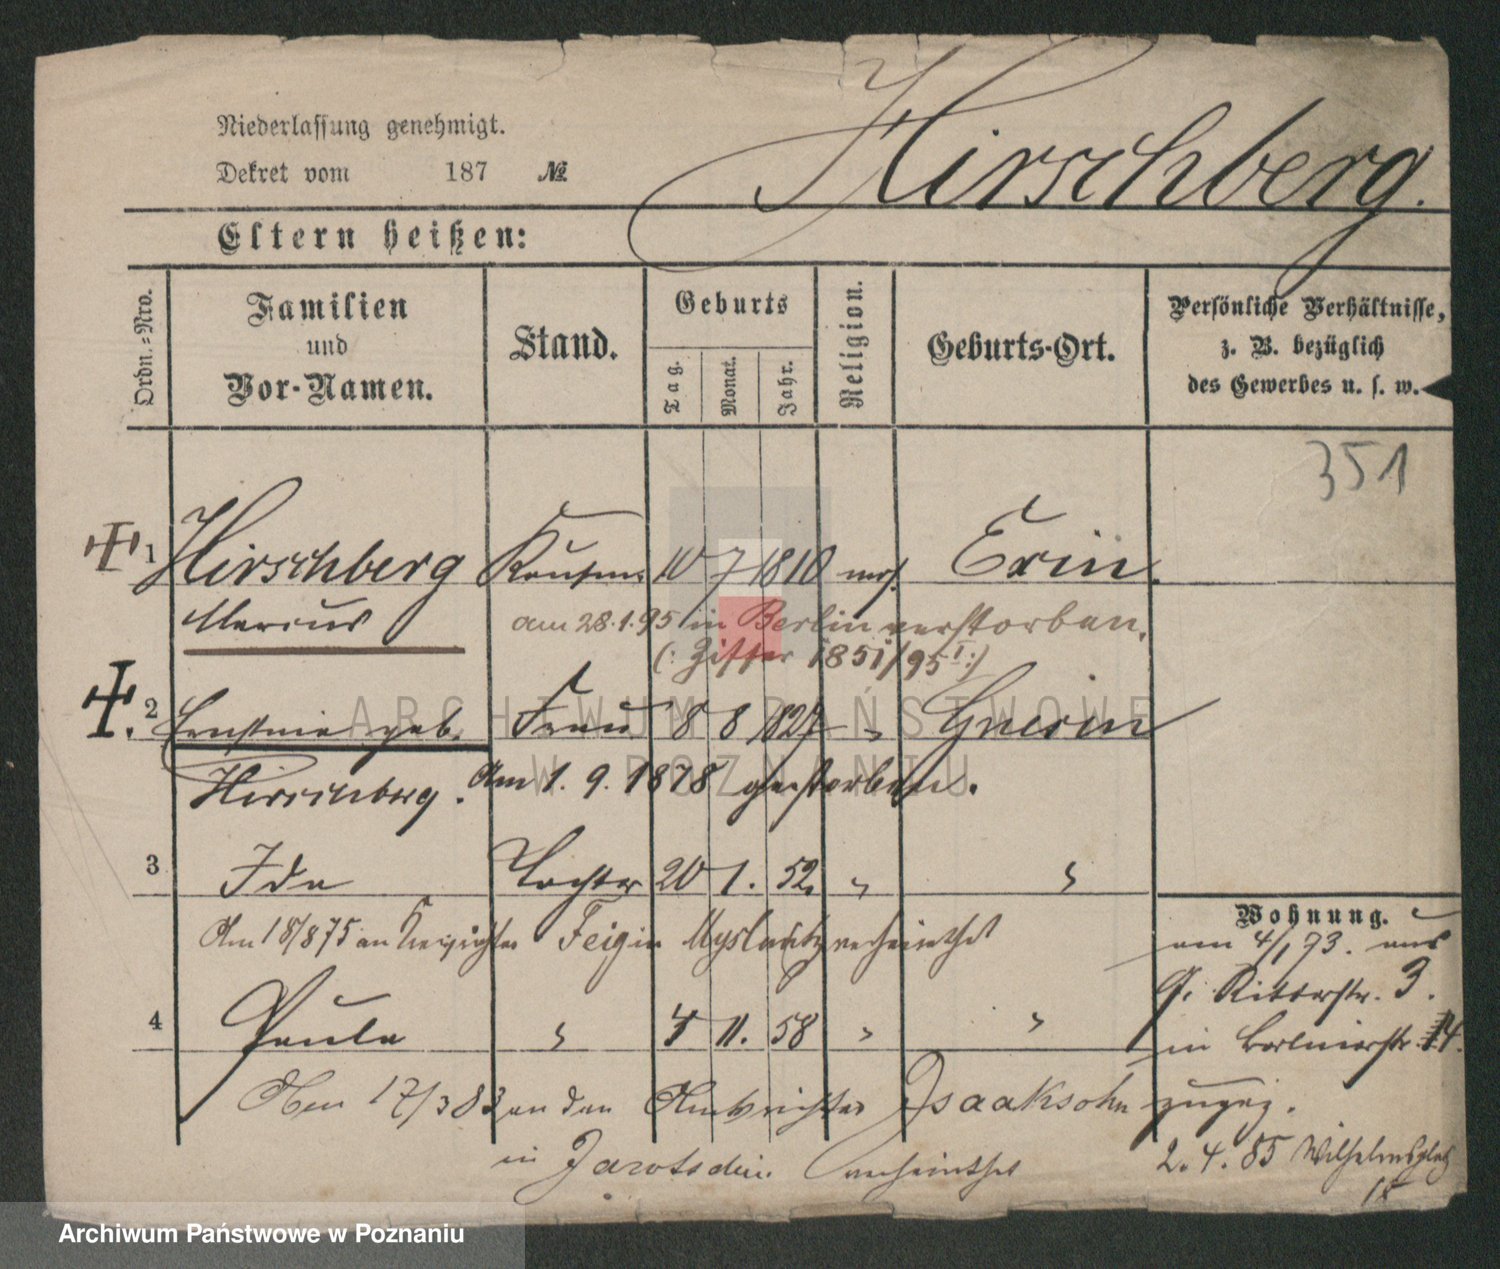 Niederlassung genehmigt.
Dekret vom 187 №
Hirschberg.
Eltern heißen:
Ordn.-Nro.
Familien
und
Vor-Namen.
Stand.
Geburts
Tag.
Monat.
Jahr.
Religion.
Geburts-Ort.
Persönliche Verhältnisse,
z. B. bezüglich
des Gewerbes u. s. w.
351
1 Hirschberg Kaufm. 10 7 1810 mos. Exin.
Marcus am 28.1.95 in Berlin verstorben.
(: Ziffer 1851/95 I :)
2 Ernstine geb. Frau 8 8 1827 " Gnesen
Hirschberg. Am 1. 9. 1878 gestorben.
3 Ida Tochter 20 1. 52. " "
Am 18/8 75 an Kreisrichter Feige in Myslowitz verheirathet
4 Paula " 4 11. 58 " "
Am 17/3 83 an den Amtsrichter Isaaksohn
in Jarotschin verheirathet
Wohnung.
am 4/1 73. aus
Gr. Ritterstr. 3.
in Berlinerstr. 14.
zugez.
2. 4. 85 Wilhelmsplatz
ARCHIWUM PAŃSTWOWE
W POZNANIU
Archiwum Państwowe w Poznaniu